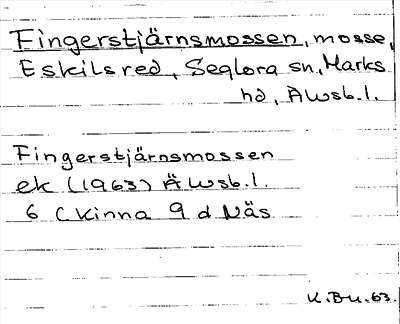 Fingerstjärnsmossen, mosse,
Eskilsred, Seglora sn, Marks
hd, Äwsb.l.
Fingerstjärnsmossen
ek (1963) Äwsb.l.
6 C Kinna 9 d Näs
K.Bu.63.